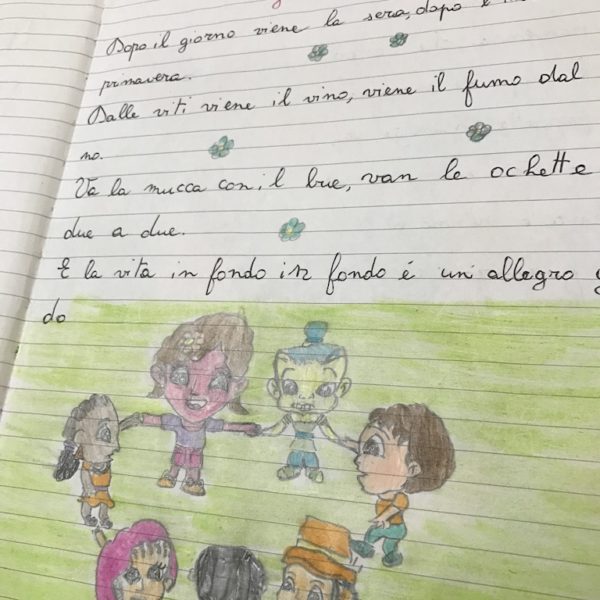 Dopo il giorno viene la sera, dopo
primavera.
Dalle viti viene il vino, viene il fumo dal
no.
Va la mucca con, il bue, van le ochette
due a due.
E la vita in fondo in fondo é un' allegro
do